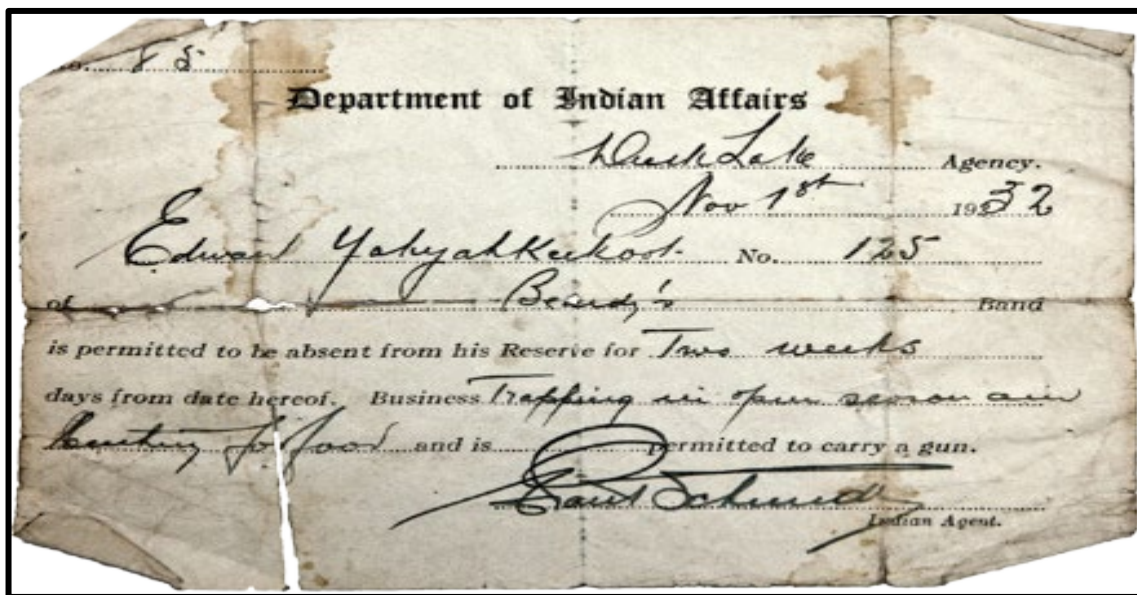 No. 85
Department of Indian Affairs
Duck Lake Agency.
Nov 1st 1932
Edward Yahyahkeekoot No. 125
of Beardy's Band
is permitted to be absent from his Reserve for Two weeks
days from date hereof. Business Trapping in open season and
hunting for food and is permitted to carry a gun.
Paul Schmidt
Indian Agent.